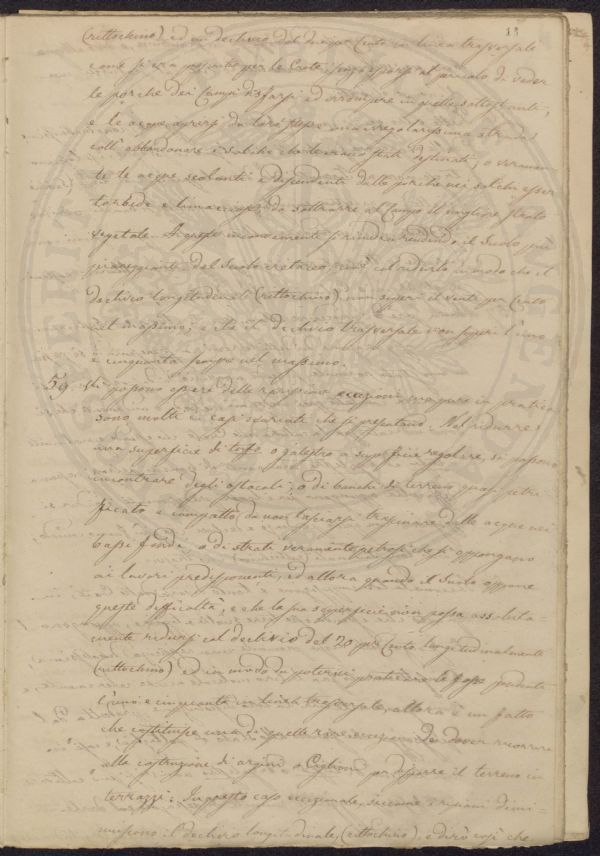 13
(rittochino) ed un declivio del dieci per Cento in linea trasversale
come si era per le Crete, senza esporsi al pericolo di veder
le porche dei Campi disfarsi ed irrompere in quelle sottostanti,
e le acque aprersi da loro stesse una irregolarissima strada
coll' abbandonare i solchi che terranno stati destinati, o veramen-
te le acque scolanti e dipendenti dalle porche nei solchi esser
torbide e limacciose da sottrarre al Campo il migliore strato
vegetale. A questo inconveniente si rimedia rendendo il Suolo più
pianeggiante del Suolo cretoso, cioè col ridurlo in modo che il
declivio longitudinale (rittochino) non superi il venti per Cento
nel massimo; e che il declivio trasversale non superi l'uno
e cinquanta sempre nel massimo.
59. Vi possono essere delle rarissime eccezioni ma pure in pratica
sono molti i casi svariati che si presentano. Nel ridurre
una superficie di tufo o galestro a superficie regolare, si possono
incontrare degli ostacoli, o di banchi di terreno quasi petri-
ficato e compatto da non lasciarsi trascinare dalle acque nei
bassi fondi o di strati veramente petrosi che si oppongano
ai lavori predisponenti, ed allora quando il Suolo oppone
queste difficoltà, e che la sua superficie non possa assoluta-
mente ridursi al declivio del 20 per Cento longitudinalmente
(rittochino) ed in modo da potervi praticare le fosse pendenti
l'uno e cinquanta in linea trasversale, allora è un fatto
che costituisce una di quelle rare eccezioni da dover ricorrere
alla costruzione di argini o Ciglioni per disporre il terreno in
terrazzi. In questo caso eccezionale, siccome i ripiani dimi-
nuiscono il declivio longitudinale, (rittochino), e dirò così che